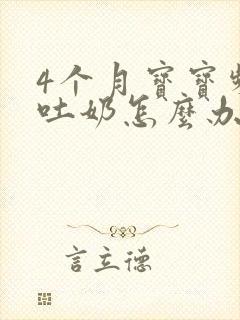 4个月寳寳
吐奶怎麼办
言立德